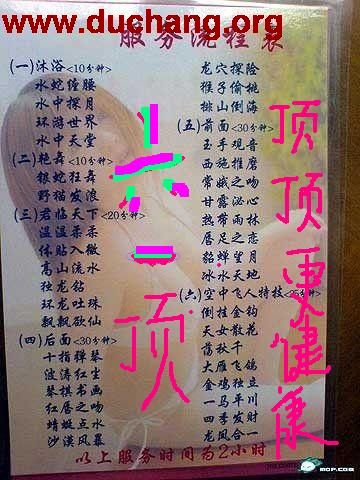 www.duchang.org
服务流程表
(一)沐浴<10分钟>
水蛇缠腰
水中探月
环游世界
水中天堂
(二)艳舞<10分钟>
银蛇狂舞
野猫发浪
(三)君临天下<20分钟>
温温柔柔
体贴入微
高山流水
独龙钻
环龙吐珠
飘飘欲仙
(四)后面<30分钟>
十指弹琴
波涛红尘
琴棋书画
红唇之吻
蜻蜓点水
沙漠风暴
龙穴探险
猴子偷桃
排山倒海
(五)前面<30分钟>
玉手观音
西施推磨
常娥之吻
甘露泌心
热带雨林
唇足之恋
貂蝉望月
冰水天地
(六)空中飞人特技
倒挂金钩
天女散花
荡秋千
大雁飞鸽
金鸡独立
一马平川
四季发财
龙凤合一
以上服务时间为2小时
六一顶
顶顶更健康
MOP.COM